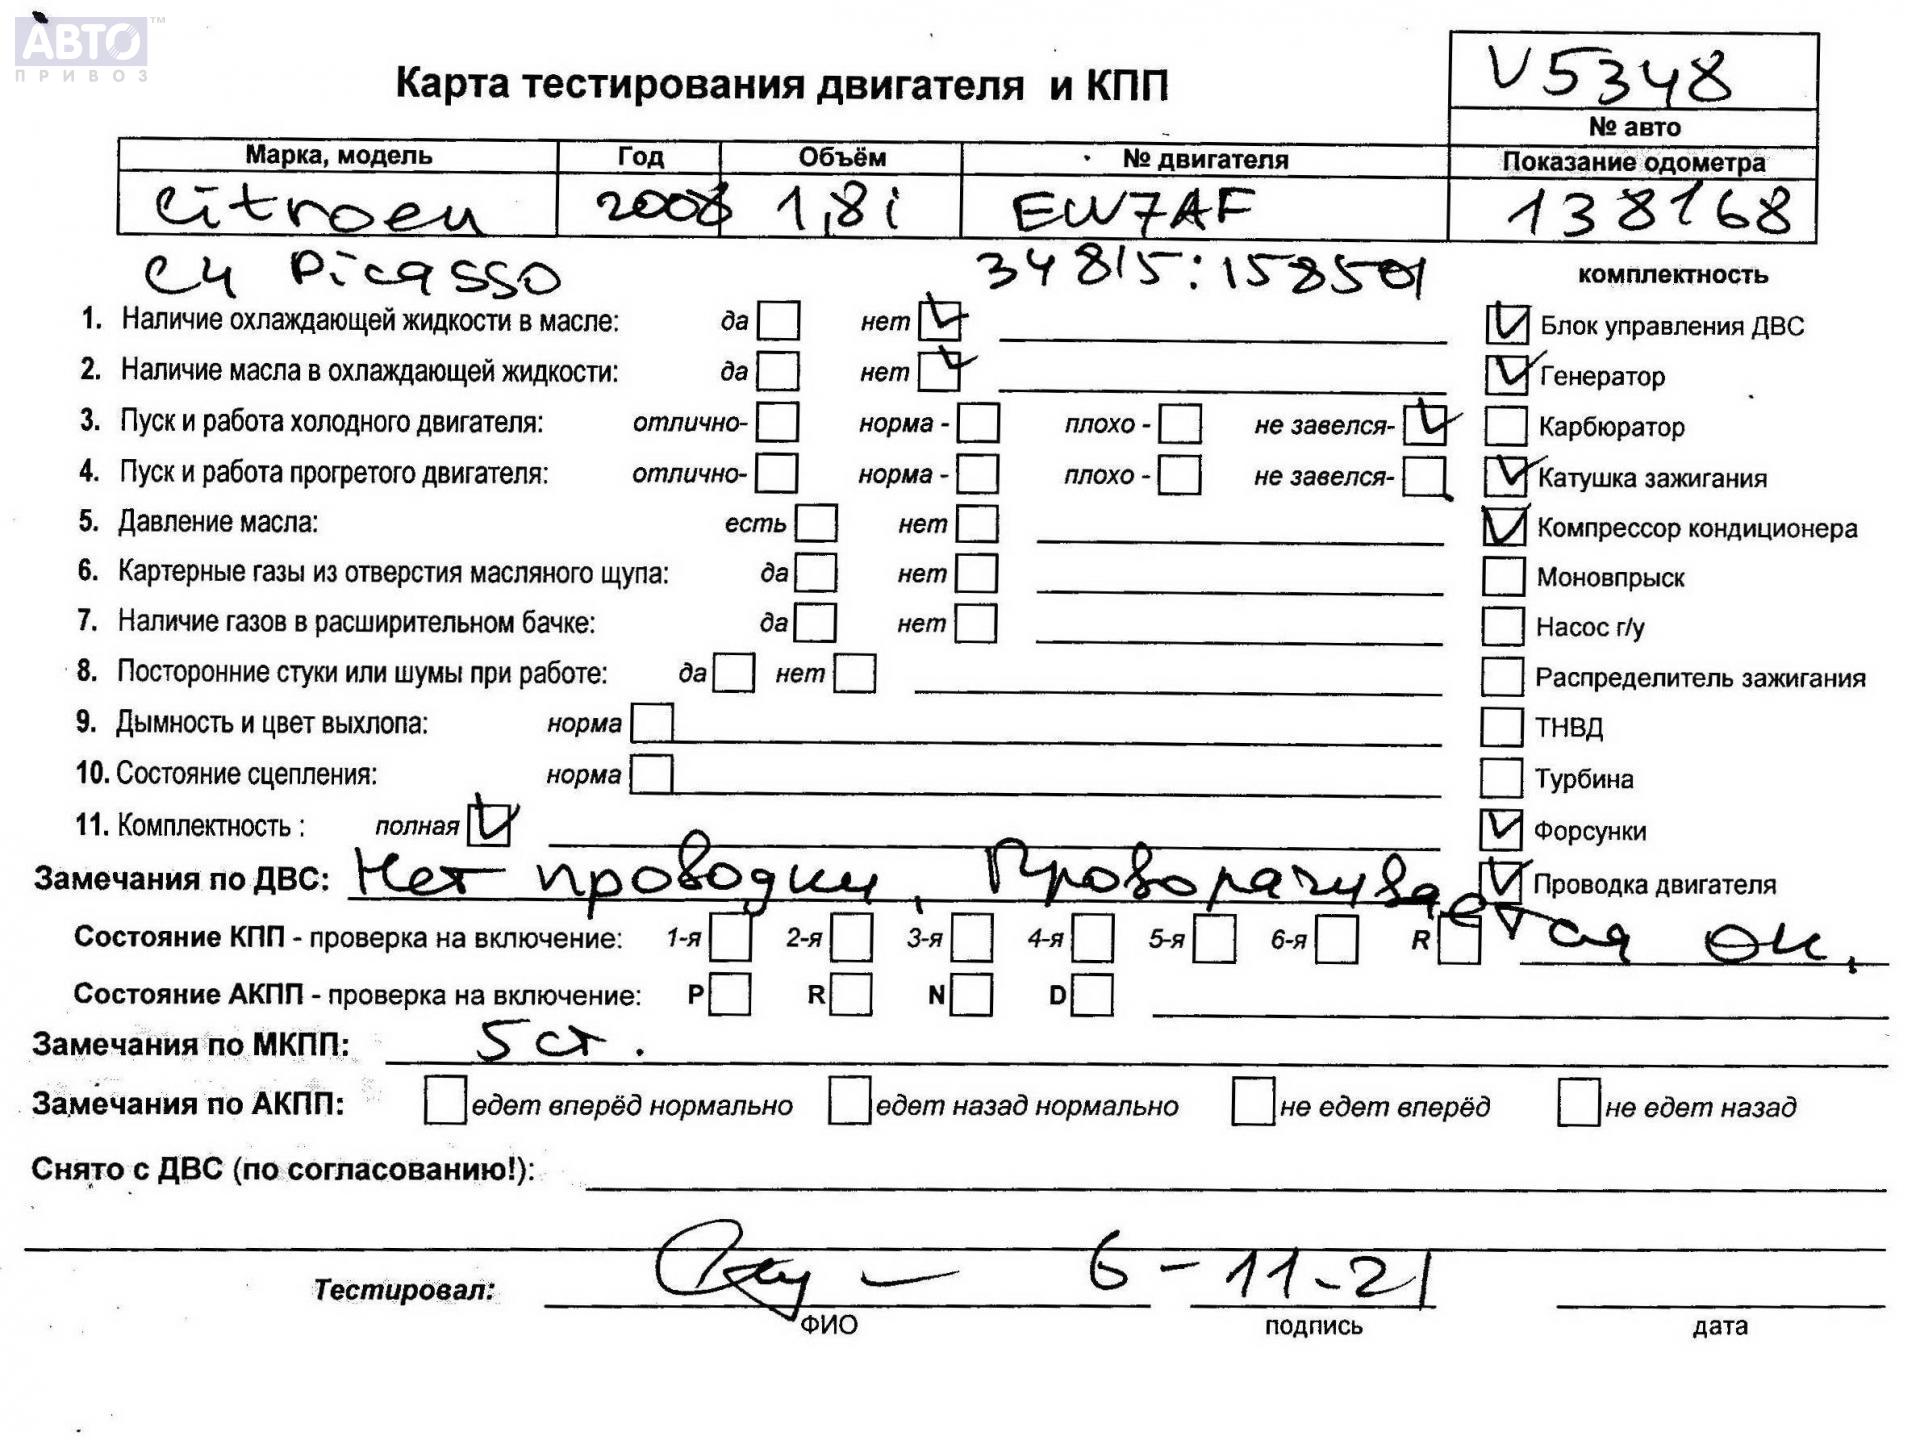 АВТО™
ПРИВОЗ
V5348
Карта тестирования двигателя и КПП
№ авто
Марка, модель Год Объём № двигателя Показание одометра
Citroen 2008 1,8i EW7AF 138168
C4 Picasso 34815:158501
комплектность
1. Наличие охлаждающей жидкости в масле: да нет Блок управления ДВС
2. Наличие масла в охлаждающей жидкости: да нет Генератор
3. Пуск и работа холодного двигателя: отлично- норма - плохо - не завелся- Карбюратор
4. Пуск и работа прогретого двигателя: отлично- норма - плохо - не завелся- Катушка зажигания
5. Давление масла: есть нет Компрессор кондиционера
6. Картерные газы из отверстия масляного щупа: да нет Моновпрыск
7. Наличие газов в расширительном бачке: да нет Насос г/у
8. Посторонние стуки или шумы при работе: да нет Распределитель зажигания
9. Дымность и цвет выхлопа: норма ТНВД
10. Состояние сцепления: норма Турбина
11. Комплектность : полная Форсунки
Замечания по ДВС: Нет проводки, Проворачивается ок. Проводка двигателя
Состояние КПП - проверка на включение: 1-я 2-я 3-я 4-я 5-я 6-я R
Состояние АКПП - проверка на включение: P R N D
Замечания по МКПП: 5 ст.
Замечания по АКПП: едет вперёд нормально едет назад нормально не едет вперёд не едет назад
Снято с ДВС (по согласованию!):
Тестировал: 6-11-21
ФИО подпись дата